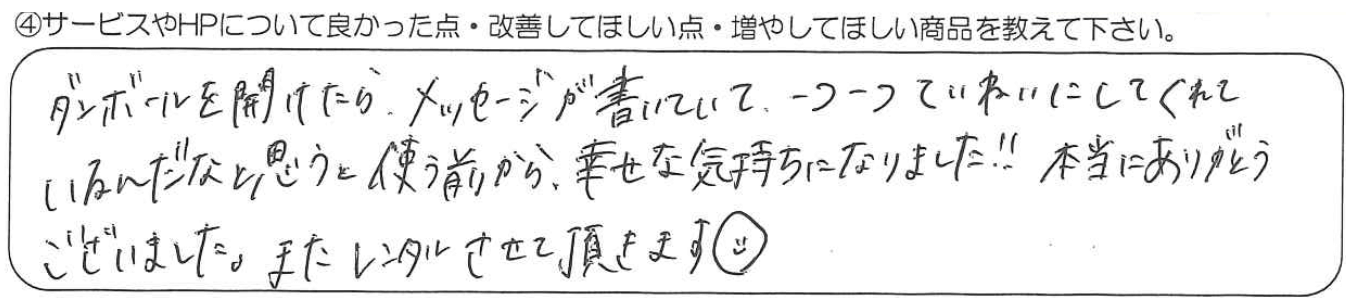 ④サービスやHPについて良かった点・改善してほしい点・増やしてほしい商品を教えて下さい。
ダンボールを開けたら、メッセージが書いていて、一つ一つていねいにしてくれて
いるんだなと思うと使う前から、幸せな気持ちになりました!! 本当にありがとう
ございました。またレンタルさせて頂きます